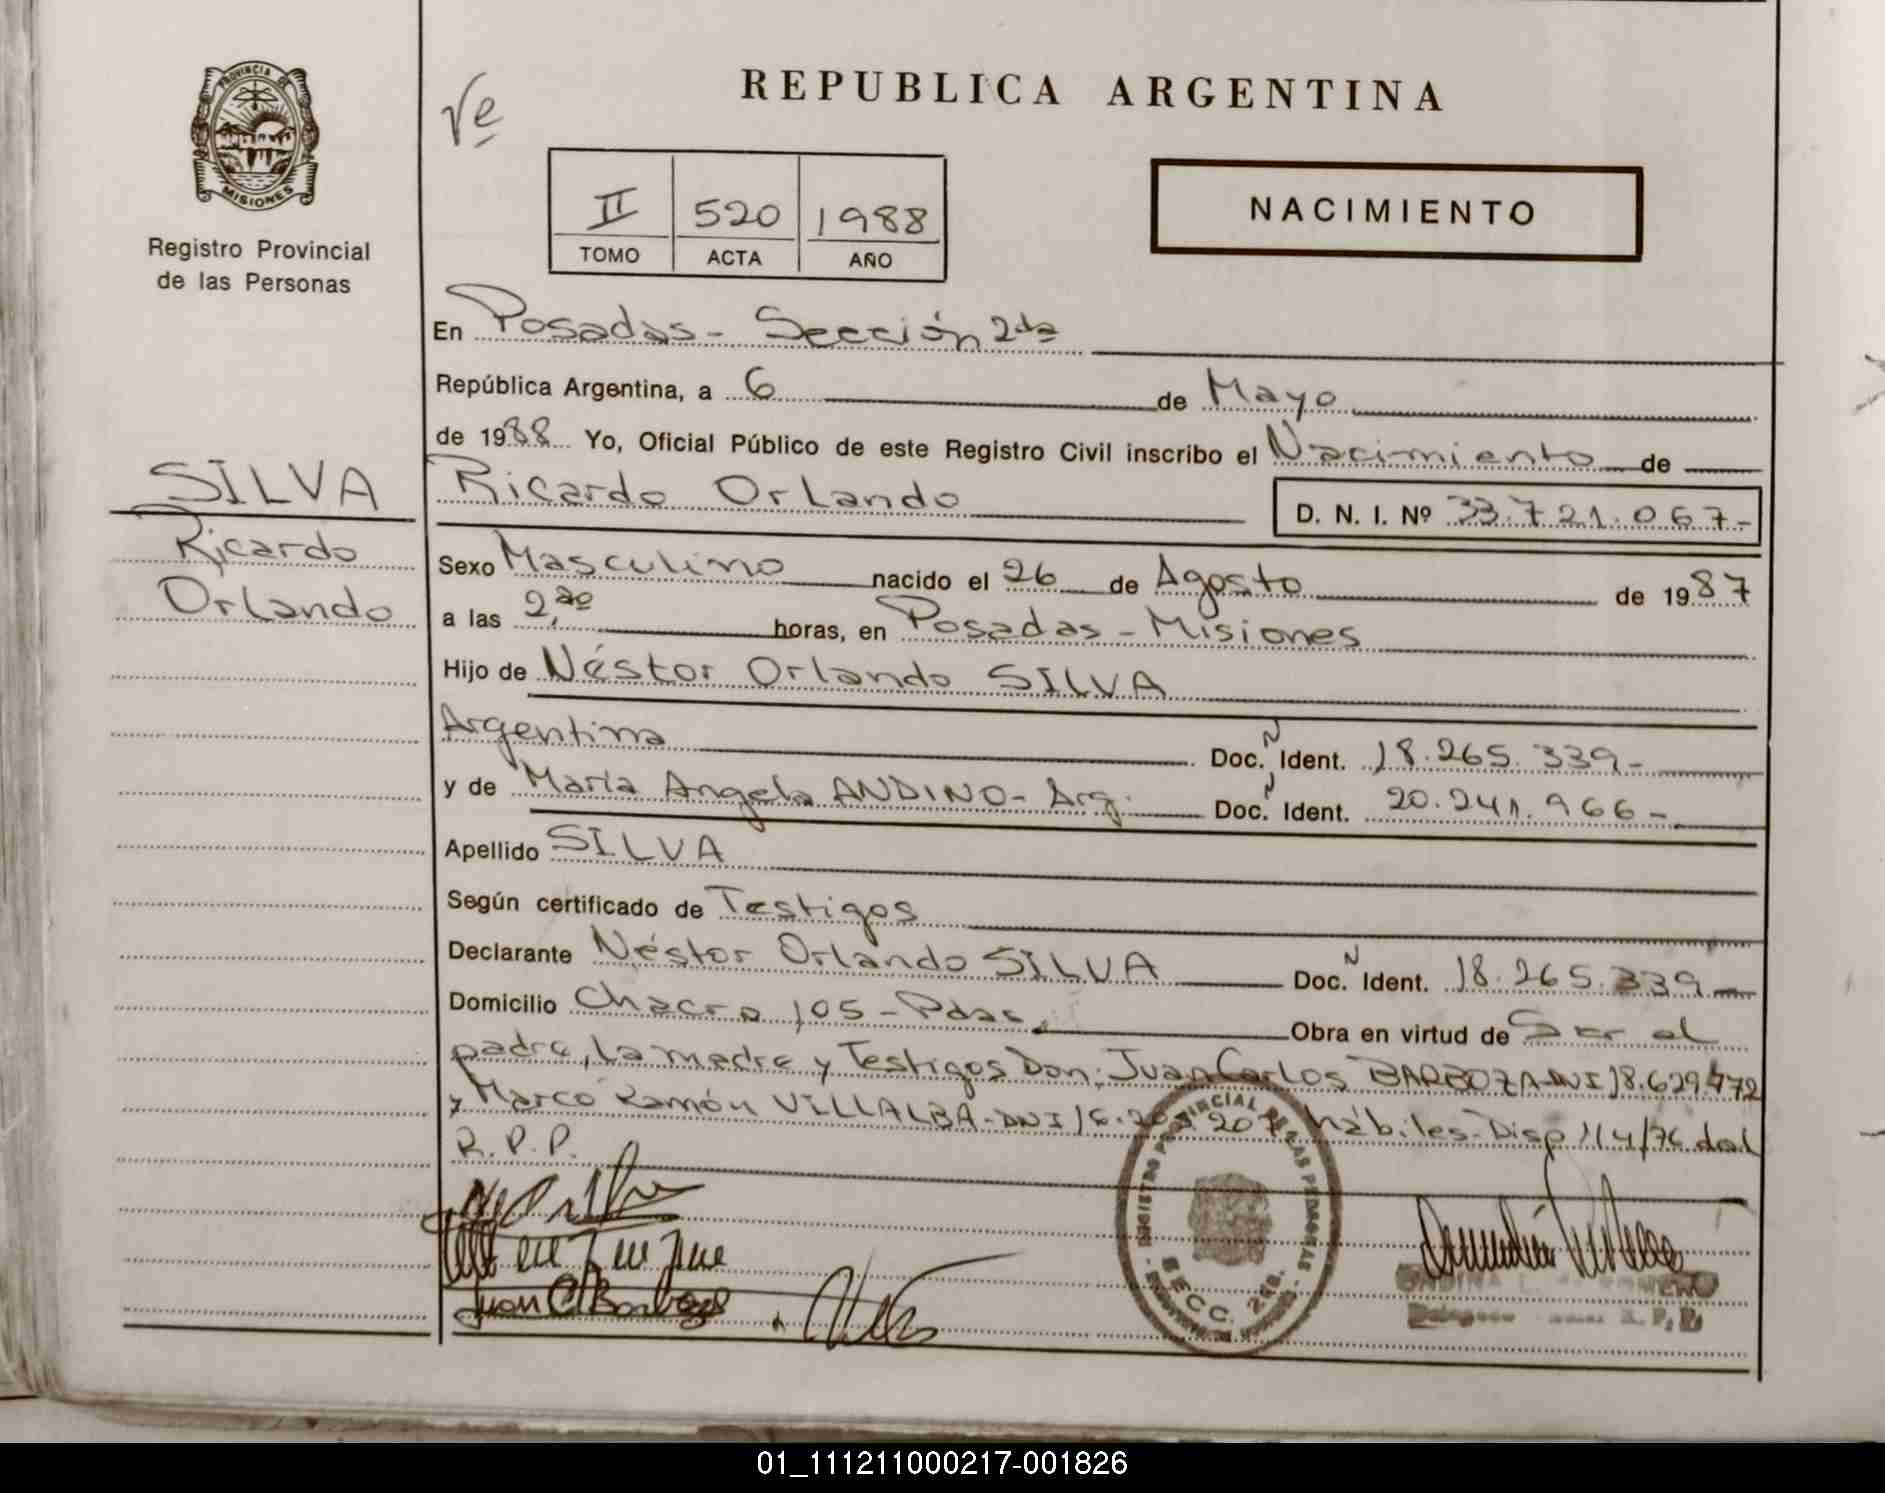 PROVINCIA DE
MISIONES
Registro Provincial
de las Personas
REPUBLICA ARGENTINA
II 520 1988
TOMO ACTA AÑO
NACIMIENTO
En Posadas - Sección 2da
República Argentina, a 6 de Mayo
de 1988 Yo, Oficial Público de este Registro Civil inscribo el Nacimiento de
SILVA
Ricardo Orlando D. N. I. Nº 33.721.067-
Ricardo
Orlando
Sexo Masculino nacido el 26 de Agosto de 1987
a las 2, horas, en Posadas - Misiones
Hijo de Néstor Orlando SILVA
Argentina Doc. N Ident. 18.265.339-
y de María Angela ANDINO - Arg. Doc. N Ident. 20.241.966-
Apellido SILVA
Según certificado de Testigos
Declarante Néstor Orlando SILVA Doc. N Ident. 18.265.339-
Domicilio Chacra 105 - Pdas. Obra en virtud de Ser el
padre, la madre y Testigos Don: Juan Carlos BARBOZA-DNI 18.629.472
y Marco Ramón VILLALBA-DNI hábiles-Disp 114/76 del
R.P.P.
Juan C Barboza
SECC. 2da.
01_111211000217-001826